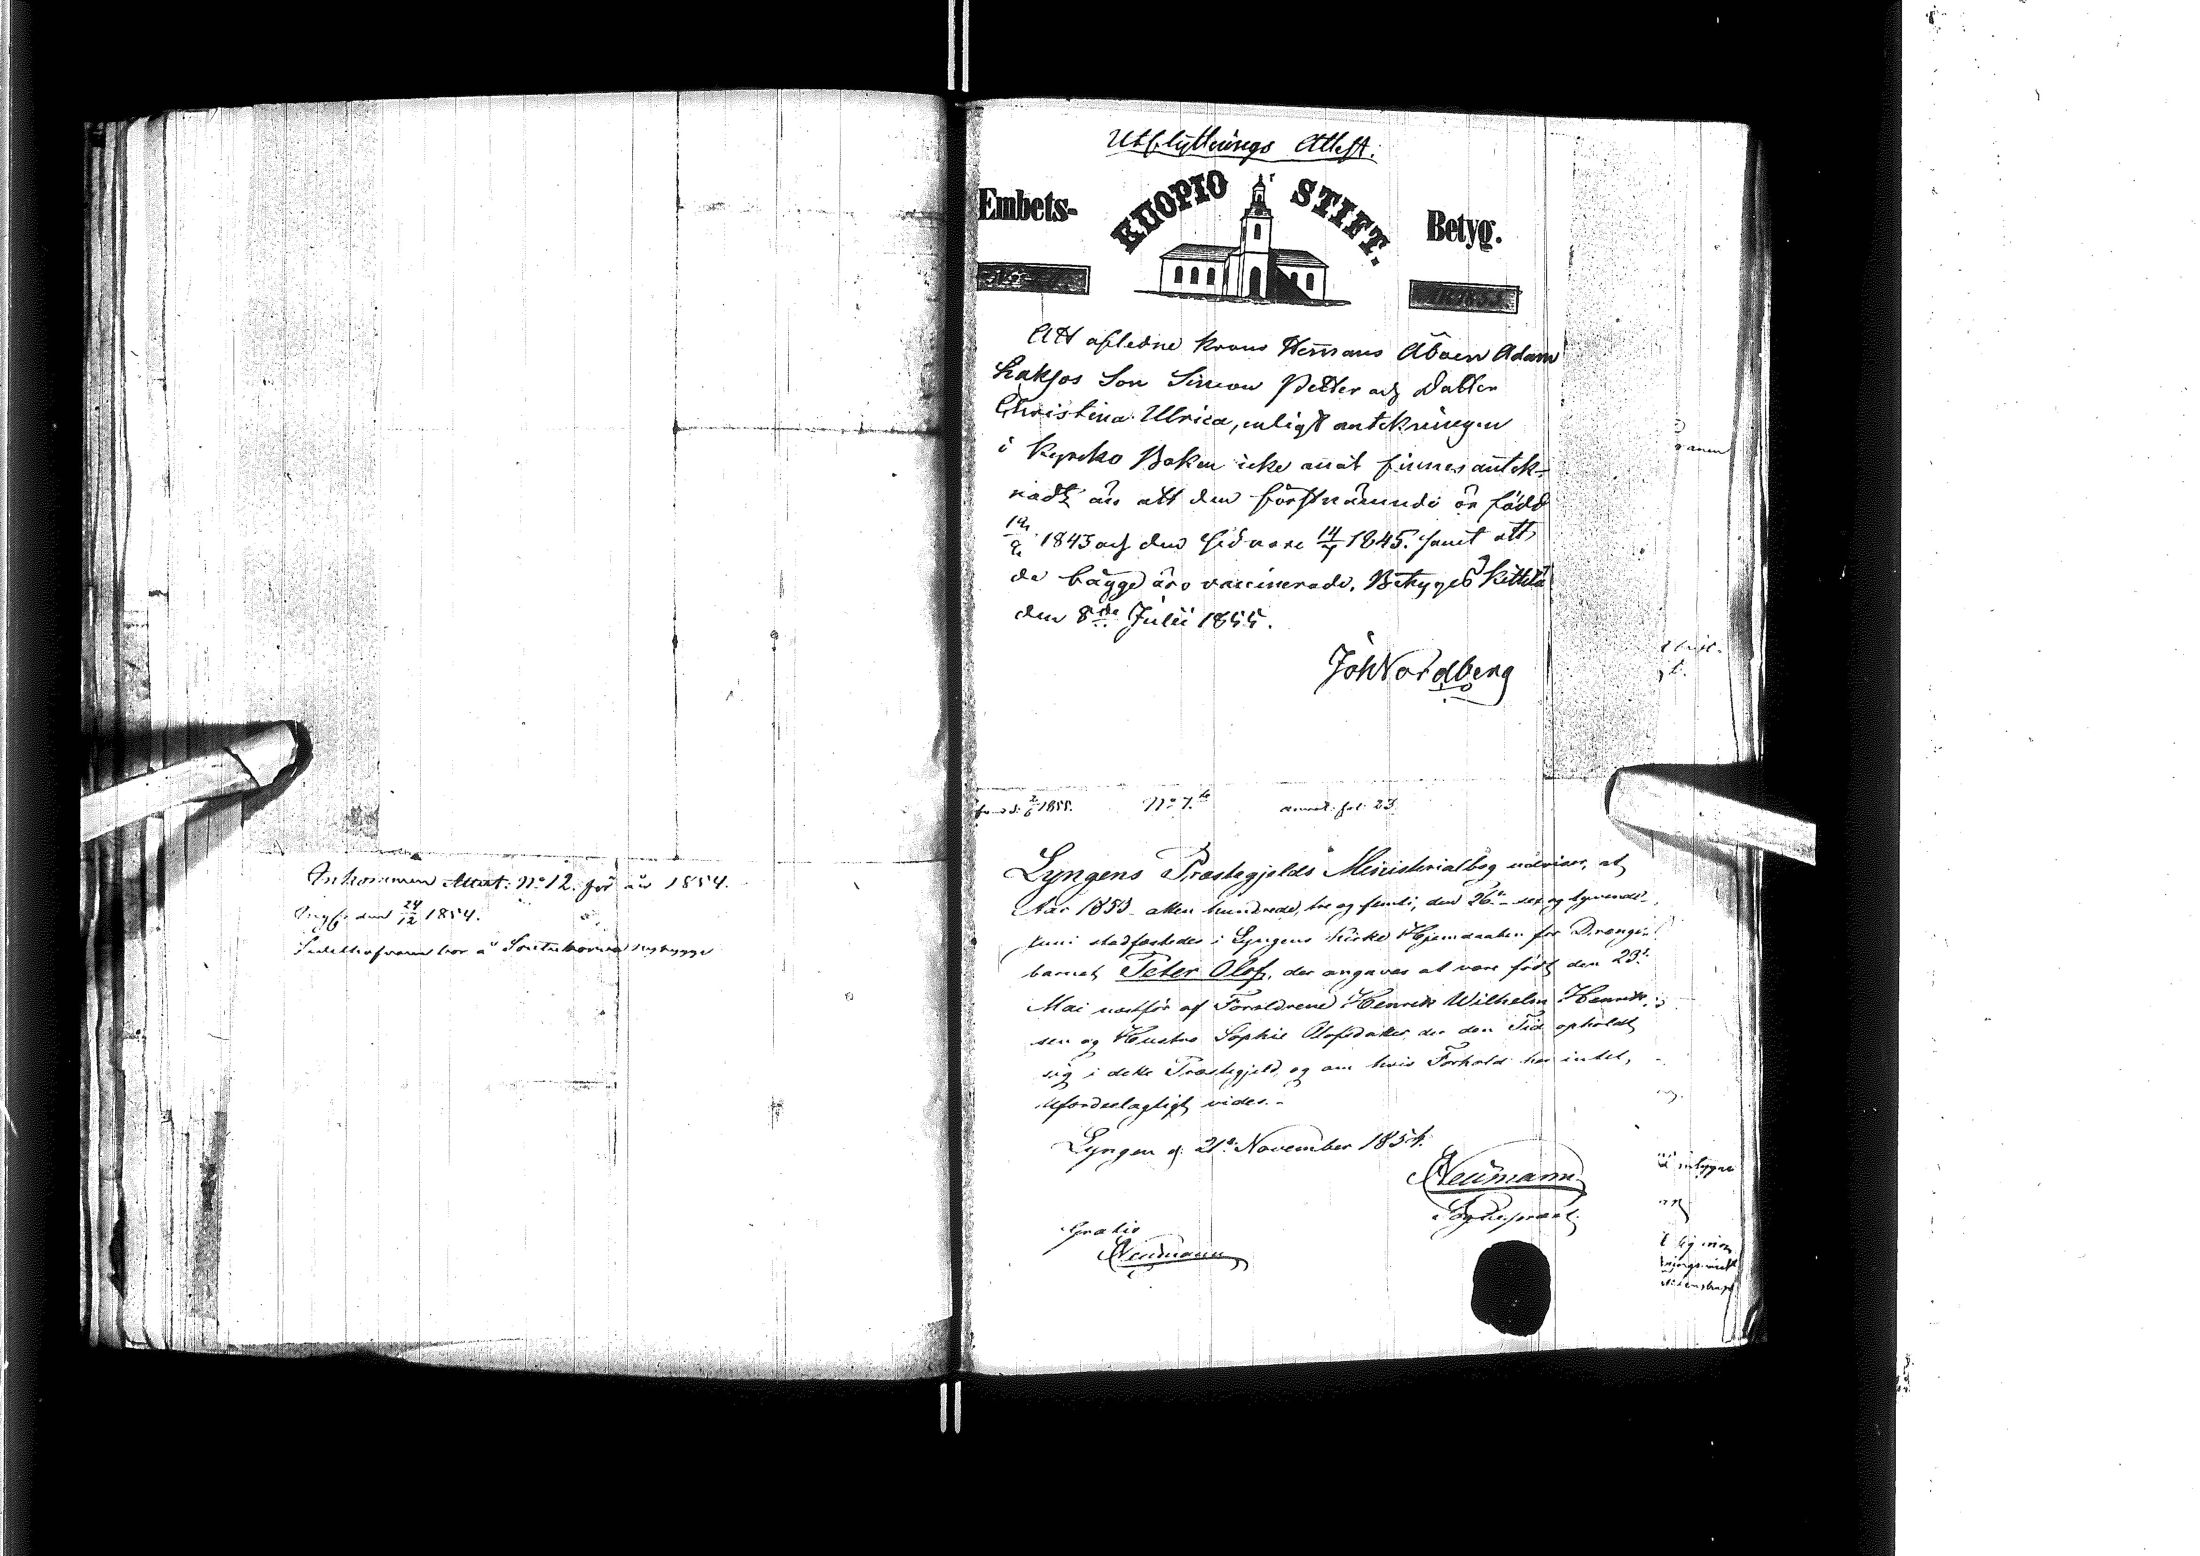 Ankommen Attest: No 12. för år 1854.
den 24/12 1854.
bor å nybygge
Utflyttnings Attest.
Embets-
KUOPIO STIFT.
Betyg.
Att afledne krono Hemans Åboen Adam
Lakjos Son Simon Petter och Dotter
Christina Ulrica, enligt antekningen
i Kyrcko Boken icke annat finnes antek-
nadt än att den förstnämnde är född
1843 och den sednare 14/4 1845. samt att
de bägge äro vaccinerade. Betyges Kittilä
den 8de Julii 1855.
Joh Nordberg
2/6 1855.
No 7.
annot. fol. 23
Lyngens Præstegjelds Ministerialbog udviser, at
Aar 1853 atten hundrede, tre og femti, den 26de sex og tyvende
Juni stadfæstedes i Lyngens Kirke Hjemmedaaben for Drenge-
barnet Peter Olof, der angaves at være født den 23de
Mai næstfør af Forældrene Henrik Wilhelm Henrik-
sen og Hustro Sophie Olofsdatter, der den Tid opholdt
sig i dette Præstegjeld, og om hvis Forhold her intet,
ufordeelagtigt vides.-
Lyngen d. 21de November 1854.
Neumann
Sognepræst.
Gratis
Neumann